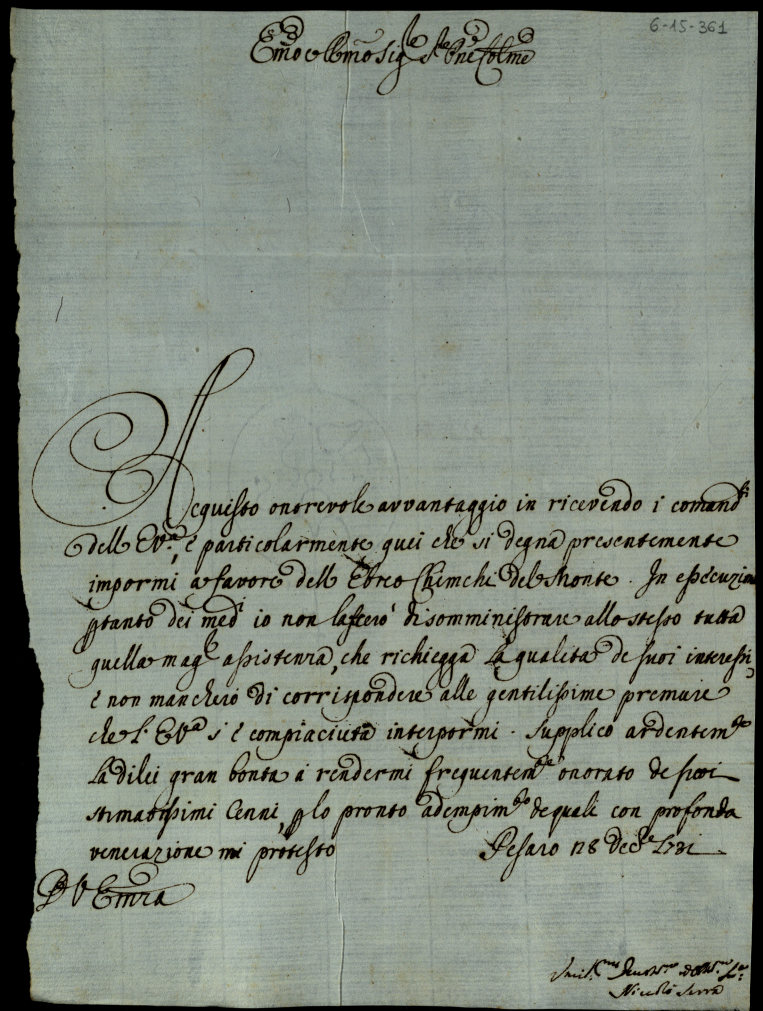 6-15-361
Emo e Rmo Sig.re Sig.re Pne Colmo
Acquisto onorevole avvantaggio in ricevendo i comand.i
dell E V.ra, é particolarmente quei che si degna presentemente
impormi a favore dell Ebreo Chimchi del Monte. In esecuzione
ptanto dei med.i io non lasceró di somministrare allo stesso tutta
quella mag.re assistenza, che richiegga la qualita de suoi interessi,
é non mancheró di corrispondere alle gentilissime premure
che l' E V.ra si é compiaciuta interpormi. Supplico ardentem.te
la di lei gran bonta á rendermi frequentem.te onorato de suoi
stimatissimi Cenni, p lo pronto adempim.to de quali con profonda
venerazione mi protesto Pesaro 28 Dec.re 1731
D V Emza
Umil.mo Devot.mo Obl.mo Se.re
Niccolò Serra